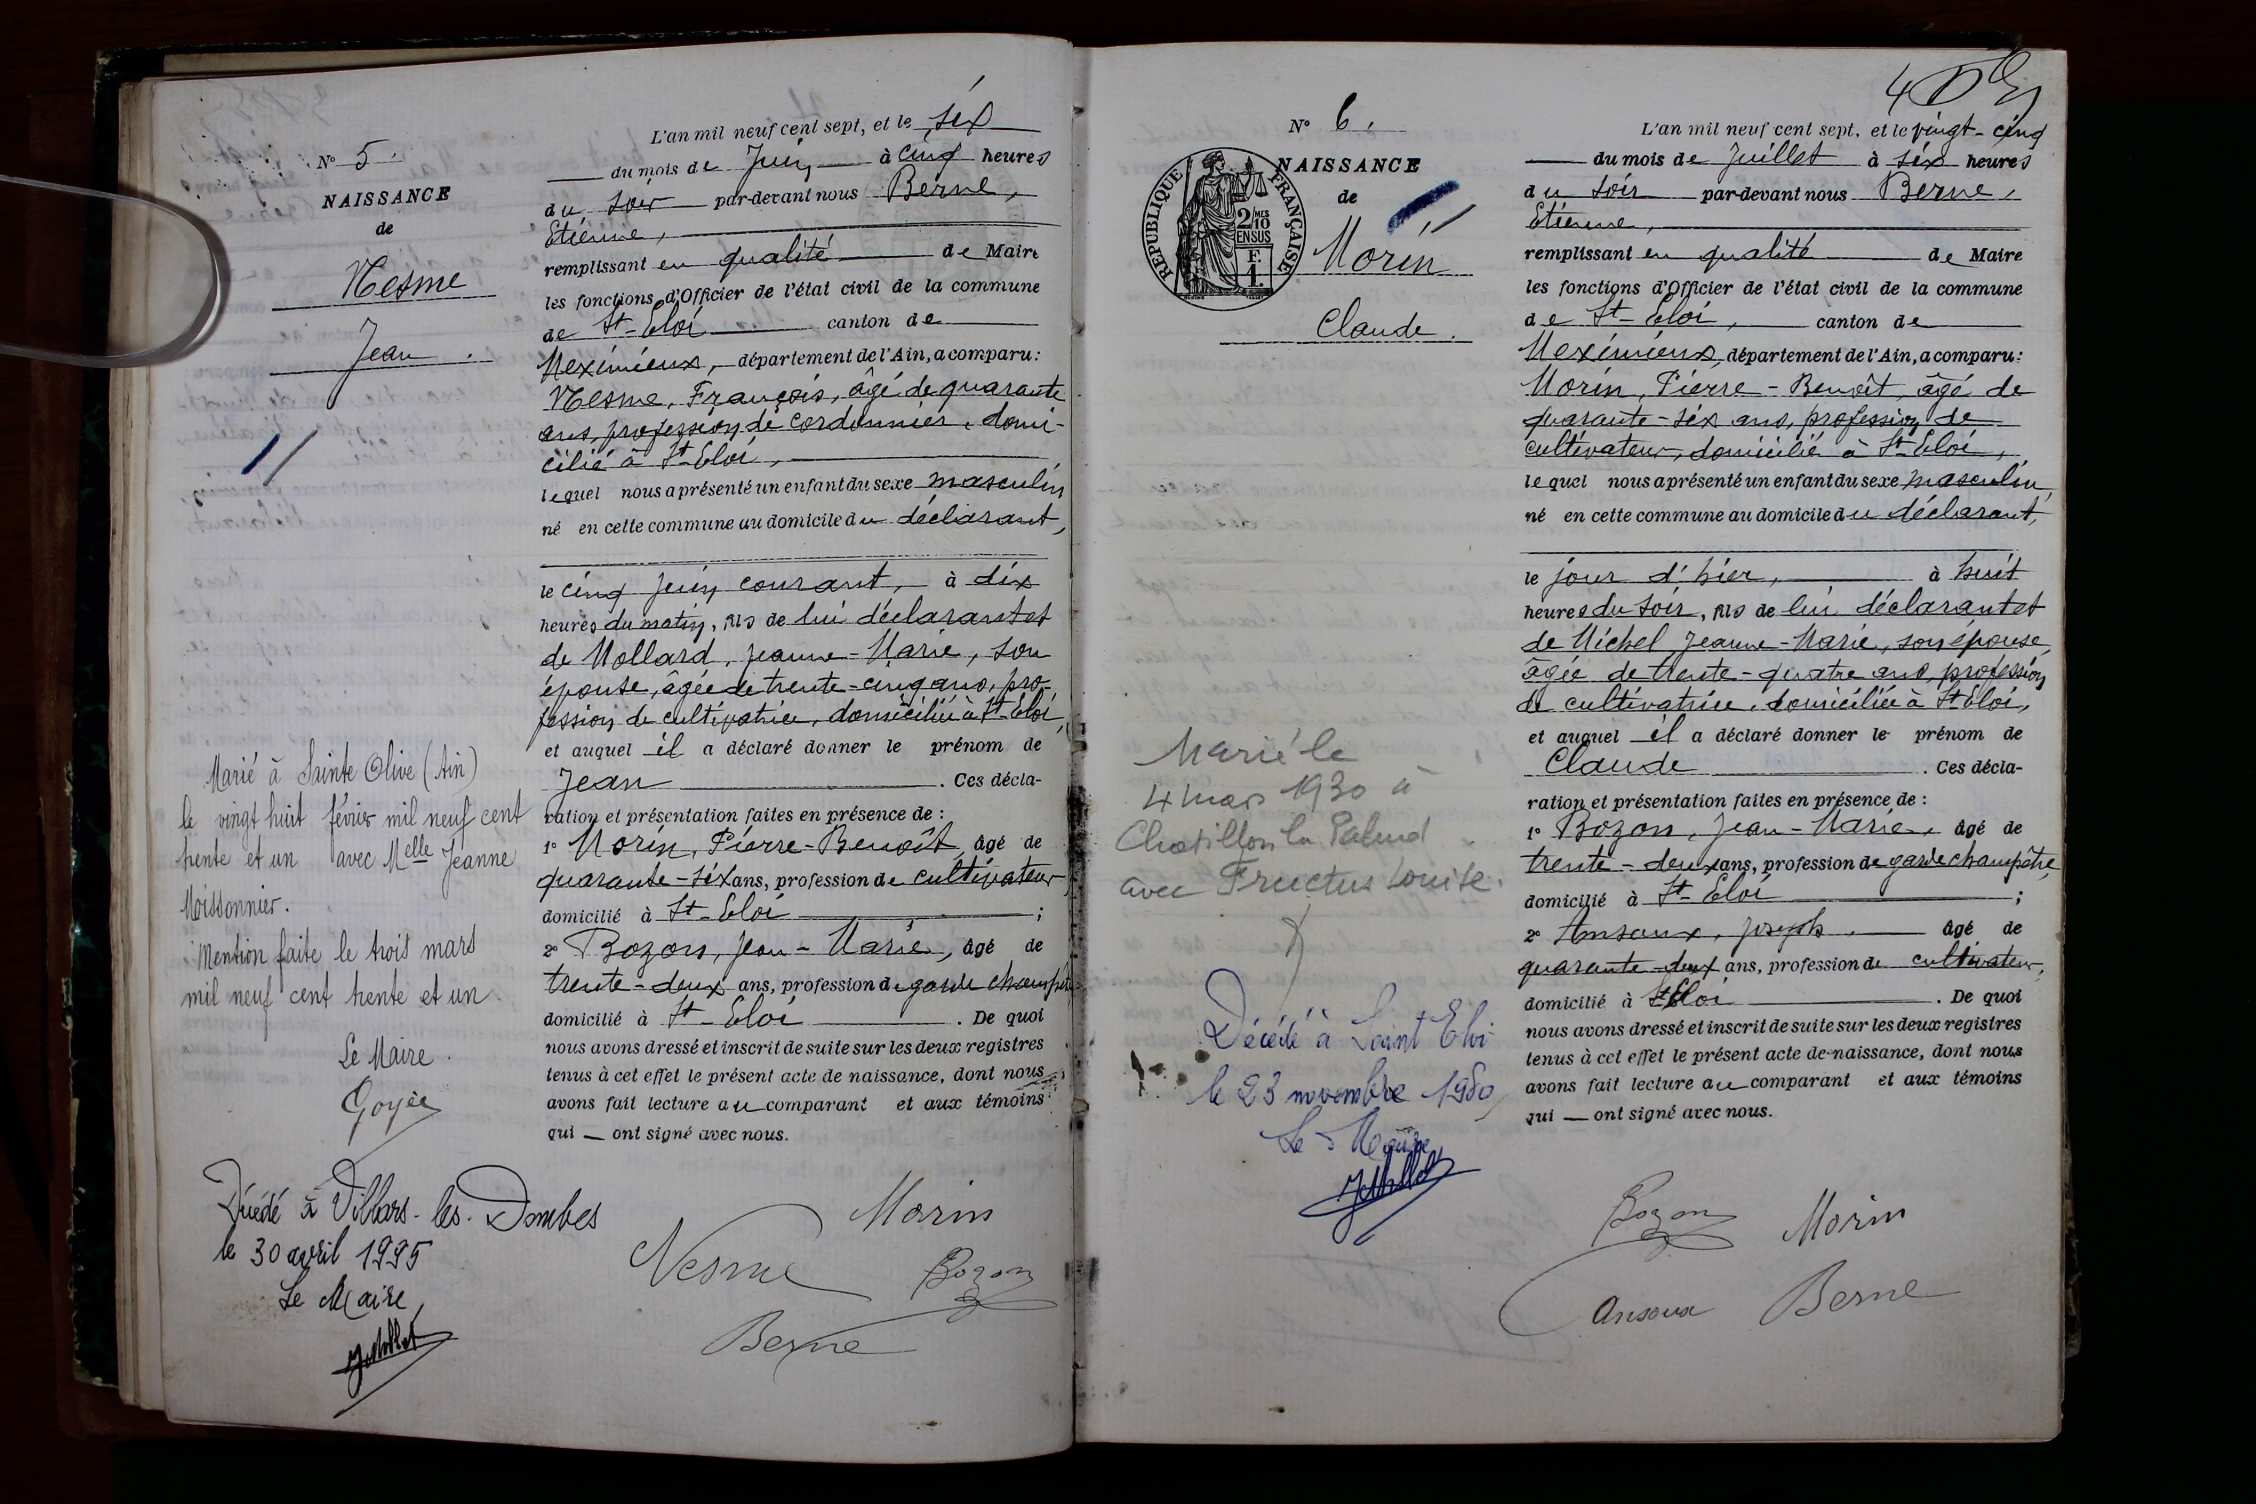 N° 5.
NAISSANCE
de
Nesme
Jean.
L'an mil neuf cent sept, et le six
du mois de Juin à cinq heures
du soir par-devant nous Berne,
Etienne,
remplissant en qualité de Maire
les fonctions d'Officier de l'état civil de la commune
de St-Eloi canton de
Meximieux, département de l'Ain, a comparu:
Nesme, François, âgé de quarante
ans, profession de cordonnier, domi-
cilié à St-Eloi,
lequel nous a présenté un enfant du sexe masculin
né en cette commune au domicile du déclarant,
le cinq juin courant, à dix
heures du matin, fils de lui déclarant et
de Mollard, Jeanne-Marie, son
épouse, âgée de trente-cinq ans, pro-
fession de cultivatrice, domiciliée à St-Eloi,
et auquel il a déclaré donner le prénom de
Jean. Ces décla-
ration et présentation faites en présence de :
1° Morin, Pierre-Benoît, âgé de
quarante-six ans, profession de cultivateur,
domicilié à St-Eloi ;
2° Bozon, Jean-Marie, âgé de
trente-deux ans, profession de garde champêtre
domicilié à St-Eloi. De quoi
nous avons dressé et inscrit de suite sur les deux registres
tenus à cet effet le présent acte de naissance, dont nous
avons fait lecture au comparant et aux témoins
qui — ont signé avec nous.
Marié à Sainte Olive (Ain)
le vingt huit février mil neuf cent
trente et un avec Melle Jeanne
Moissonnier.
Mention faite le trois mars
mil neuf cent trente et un
Le Maire.
Décédé à Villars-les-Dombes
le 30 avril 1995
Le Maire,
Morin
Nesme
Bozon
Berne
4
N° 6.
REPUBLIQUE FRANÇAISE
2/10
EN SUS
F.
1.
NAISSANCE
de
Morin
Claude.
L'an mil neuf cent sept, et le vingt-cinq
du mois de Juillet à six heures
du soir par-devant nous Berne,
Etienne,
remplissant en qualité de Maire
les fonctions d'Officier de l'état civil de la commune
de St-Eloi, canton de
Meximieux, département de l'Ain, a comparu:
Morin, Pierre-Benoît, âgé de
quarante-six ans, profession de
cultivateur, domicilié à St-Eloi,
lequel nous a présenté un enfant du sexe masculin,
né en cette commune au domicile du déclarant,
le jour d'hier, à huit
heures du soir, fils de lui déclarant et
de Michel Jeanne-Marie, son épouse,
âgée de trente-quatre ans, profession
de cultivatrice, domiciliée à St-Eloi,
et auquel il a déclaré donner le prénom de
Claude. Ces décla-
ration et présentation faites en présence de :
1° Bozon, Jean-Marie, âgé de
trente-deux ans, profession de garde champêtre
domicilié à St-Eloi ;
2° Ansoux, Joseph, âgé de
quarante-deux ans, profession de cultivateur,
domicilié à St Eloi. De quoi
nous avons dressé et inscrit de suite sur les deux registres
tenus à cet effet le présent acte de naissance, dont nous
avons fait lecture au comparant et aux témoins
qui — ont signé avec nous.
Marié le
4 mars 1930 à
Chatillon la Palud
avec Fructus Louise.
Décédé à Saint Eloi
le 23 novembre 1980
Le Maire
Bozon
Morin
Ansoux
Berne